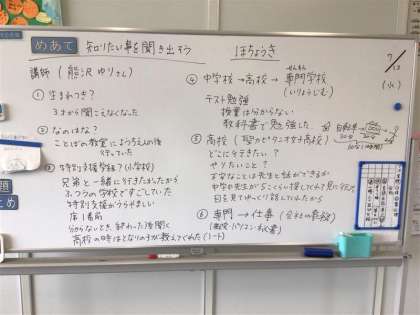 めあて 知りたい事を聞き出そう
ほちょうき
講師(熊沢ゆりさん)
① 生まれつき?
3才から聞こえなくなった
② なのはな?
ことばの教室にようち入の後
行っていた
③ 特別支援学級?(小学校)
兄弟と一緒に行きたかったから
ふつうの学校ですごしていた
特別支援がうらやましい
席1番前
分からないとき、終わった後聞く
高校の時はとなりの子が教えてくれた(ノート)
④ 中学校→高校→専門学校
せんもん
(いりょうじむ)
テスト勉強
授業は分からない
教科書で勉強した
⑤ 高校(聖カピタニオ女子高校)
どこに行きたい?
やりたいこと?
大学なことは先生と話ができるか
目を見てゆっくり話してくれたから
⑥ 専門→仕事(会社の事務)
7/13
(火)
題
とめ